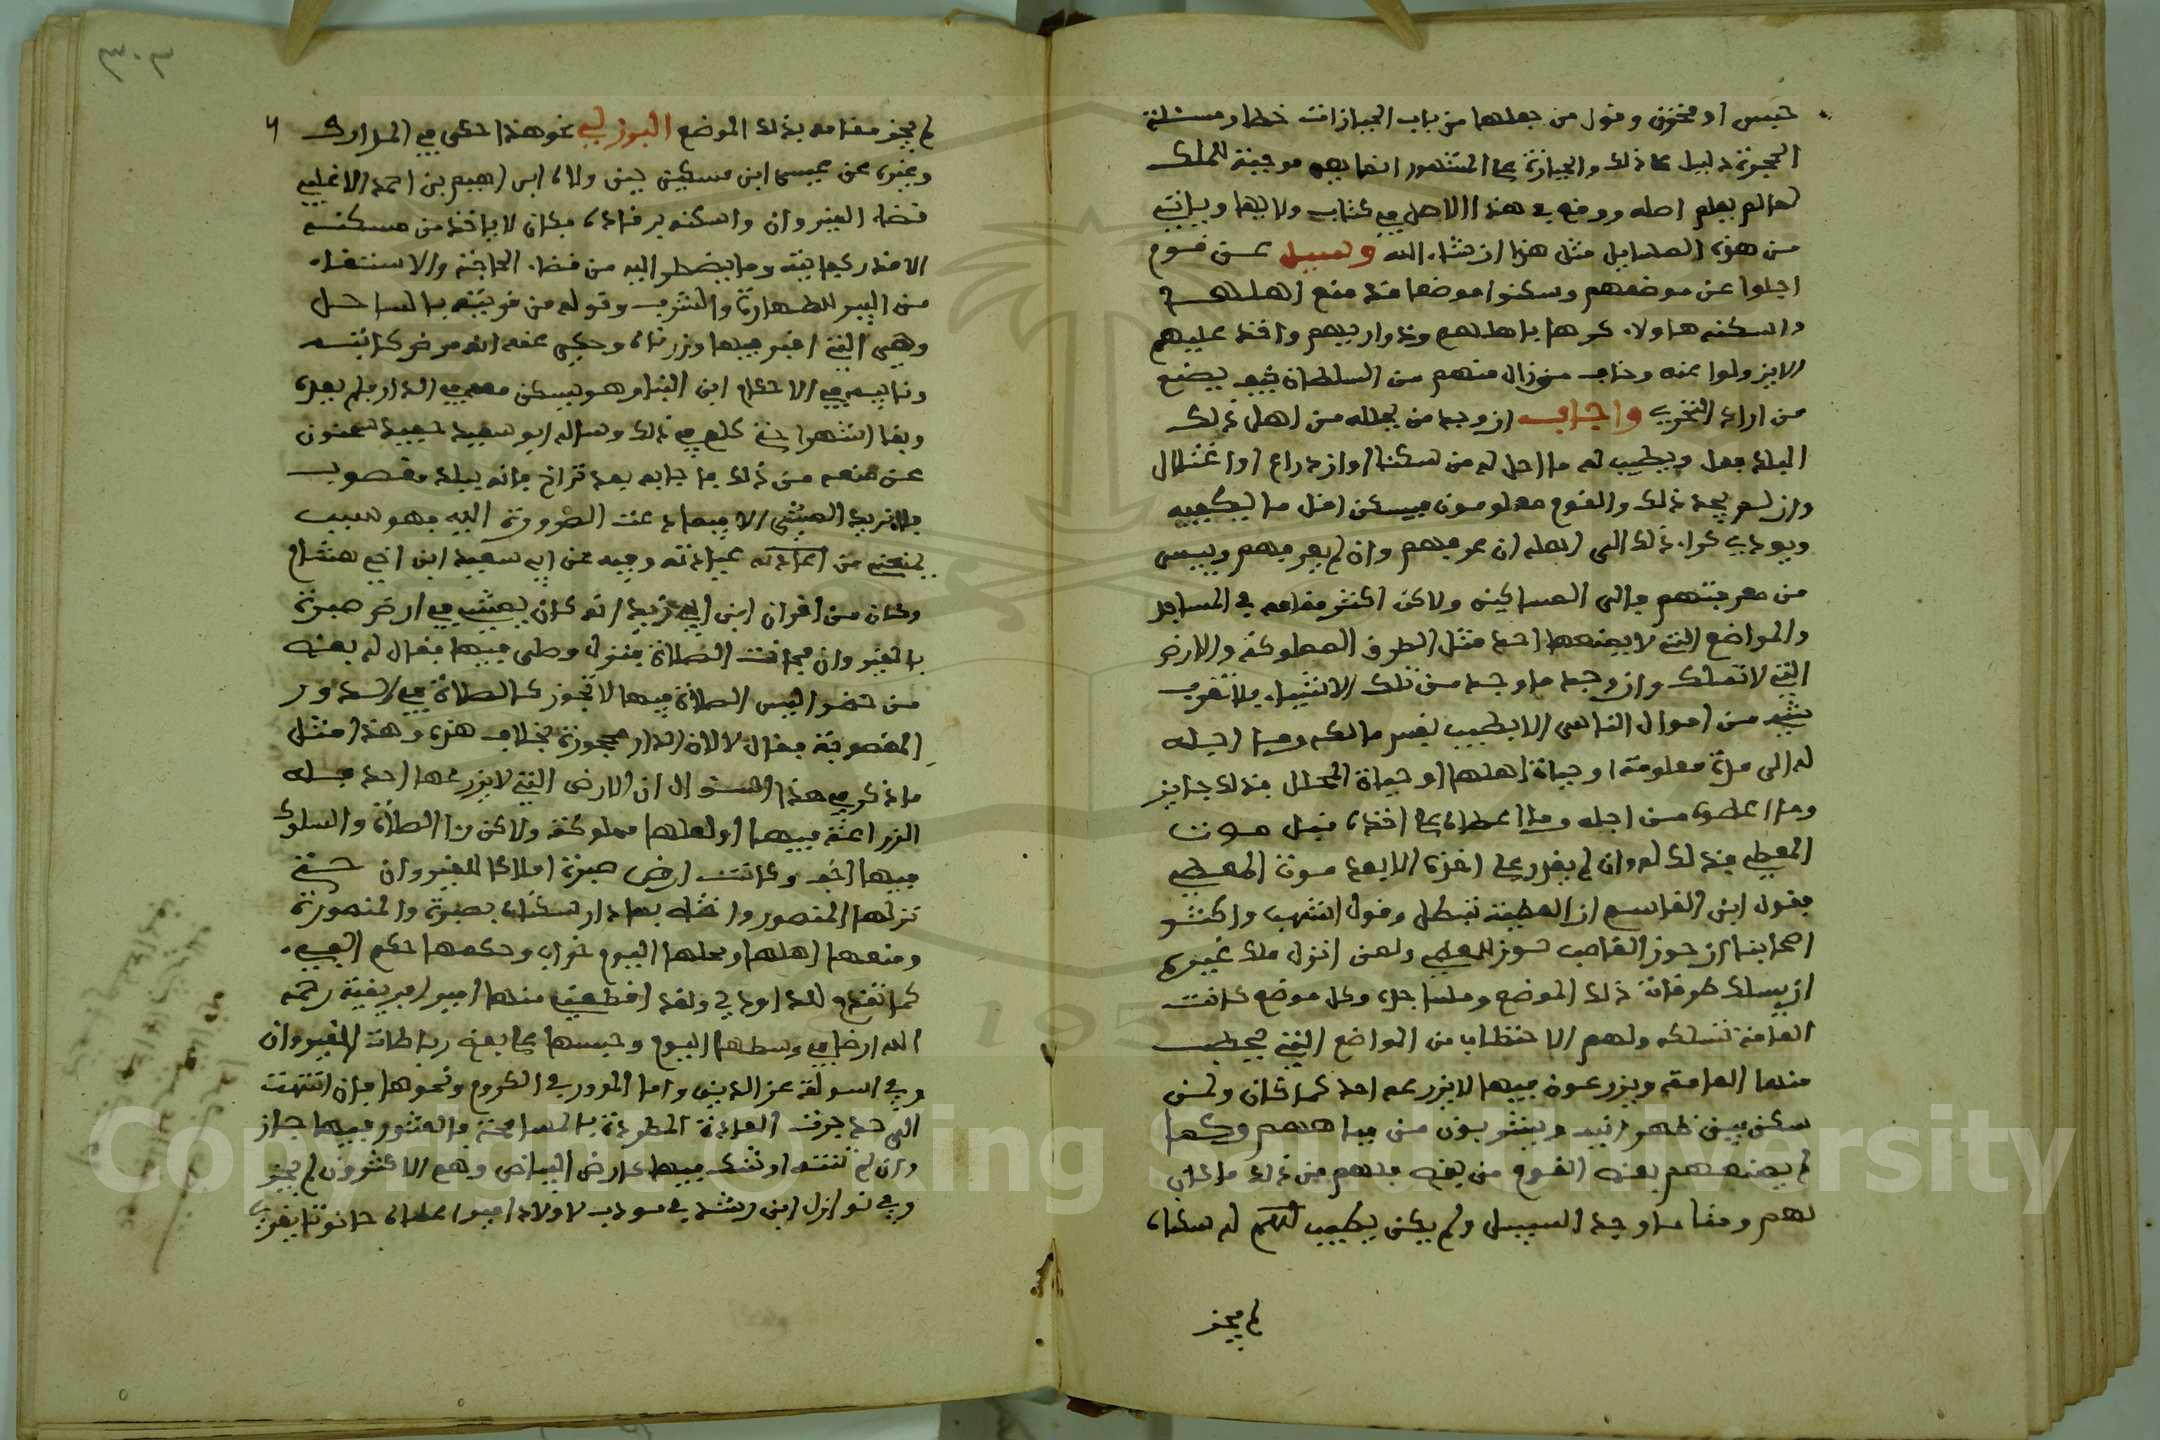 حبس او مخزن وقول من جعلها من باب الحيازات خطا ومسئلة
الحجرة دليل على ذلك والحيازة على المشهور انما هي موجبة للملك
لما لم يعلم اصله ووقع في هذا الاصل في كتاب ولايها وياتي
من هذه المسايل مثل هذا ان شاء الله وسيل عن قوم
اجلوا عن موضعهم وسكنوا موضعا قد منع اهله
واسكنه هاولاء كرها باهلهم وذراريهم واخذ عليهم
الا يزولوا عنه وخاف من زال منهم من السلطان كيف يصنع
من اراد التحري واجاب ان وجد من يحلله من اهل ذلك
البلد فعل ويطيب له ما احل له من سكنا او ازدراع او اغتلال
وان لم يجد ذلك والقوم معلومون فيسكن اقل ما يكفيه
ويودي كراء ذلك الى اهله ان عرفهم وان لم يعرفهم وييس
من معرفتهم فالى المساكين ولاكن اكثر مقامه في المساجد
والمواضع التي لا يمنعها احد مثل الطرق المملوكة والارض
التي لا تملك وان وجد ما وجد من تلك الاشياء فلا تقرب
شيء من اموال الناس الا بطيب نفس مالكه وما اجله
له الى مدة معلومة او حياة اهلها او حياة المحلل فذلك جايز
وما اعطوه من اجله وما اعطاه على اخذه قبل موت
المعطي فذلك له وان لم يقدر على اخذه الا بعد موت المعطي
فقول ابن القاسم ان العطية تبطل وقول اشهب واكثر
اصحابنا ان حوز الغاصب حوز للمعطي ولمن انزل ملك غيره
ان يسلك طرقات ذلك الموضع ومساجده وكل موضع كانت
العامة تسلكه ولهم الاحتطاب من المواضع التي يحطب
منها العامة ويزرعون فيها لا يزرعه احد كما كان ولمن
سكن بين ظهرانيه ويشربون من مياههم وكلما
لم يمنعهم بعض القوم من بعض فلهم من ذلك ما كان
لهم ومقام اوجد السبيل ولم يكن يطيب لكم له سكناه
لم يجز
٣٠٢
لم يجز مقامه بذلك الموضع البرزلي نحو هذا حكى في المدارك
وغيره عن عيسى ابن مسكين حين ولاه ابراهيم بن احمد الاغلبي
قضاء القيروان واسكنه برقادة فكان لا ياخذ من مسكنه
الا قدر كفايته وما يضطر اليه من قضاء الحاجة والاستقاء
من البير للطهارة والشرب وقوله من قريته بالساحل
وهي التي اقبر فيها وزرناه وحكي عنه انه مرض كاتبه
ونايبه في الاحكام ابن البنا وهو يسكن معه في الدار فلم يعده
وبقا اشهرا حتى كلم في ذلك وساله ابو سعيد حفيد سحنون
عن منعه من ذلك فاجابه بعد تراخ بانه ببلد مغصوب
فلا نريد المشي الا فيما دعت الضرورة اليه فهو سبب
يمنعني من اعادته عيادته وفيه عن ابي سعيد ابن اخي هشام
وكان من اقران ابن ابي زيد انه كان يمشي في ارض صبرة
بالقيروان فحانت الصلاة فنزل وصلى فيها فقال له بعض
من حضر اليس الصلاة فيها لا تجوز كالصلاة في الدور
المغصوبة فقال لا لان الدار محجورة بخلاف هذه وهذا مثل
ما ذكر في هذا السوال ان الارض التي لا يزرعها احد فله
الزراعة فيها اولعلها مملوكة ولاكن را الصلاة والسلوك
فيها اخف وكانت ارض صبرة املاكا للقيروان حتى
نزلها المنصور واتخذ بها دار سكناه بصبرة والمنصورة
ومنعها اهلها ومحلها اليوم خراب وحكمها حكم الفيء
كما تقدم للداودي ولقد اقطعني منها امير افريقية رحمه
الله ارضا في وسطها اليوم وحبسها على بعض رباطات القيروان
وفي اسولة عز الدين واما المرور في الكروم ونحوها فان انتهت
الى حد جرت العادة المطردة بالمسامحة بالعثور فيها جاز
وان لم تنته او شك فيها كارض البياض وهم الاكثرون لم يجز
وفي نوازل ابن رشد في مودب لاولاد امير اعطاه حانوتا بقرب